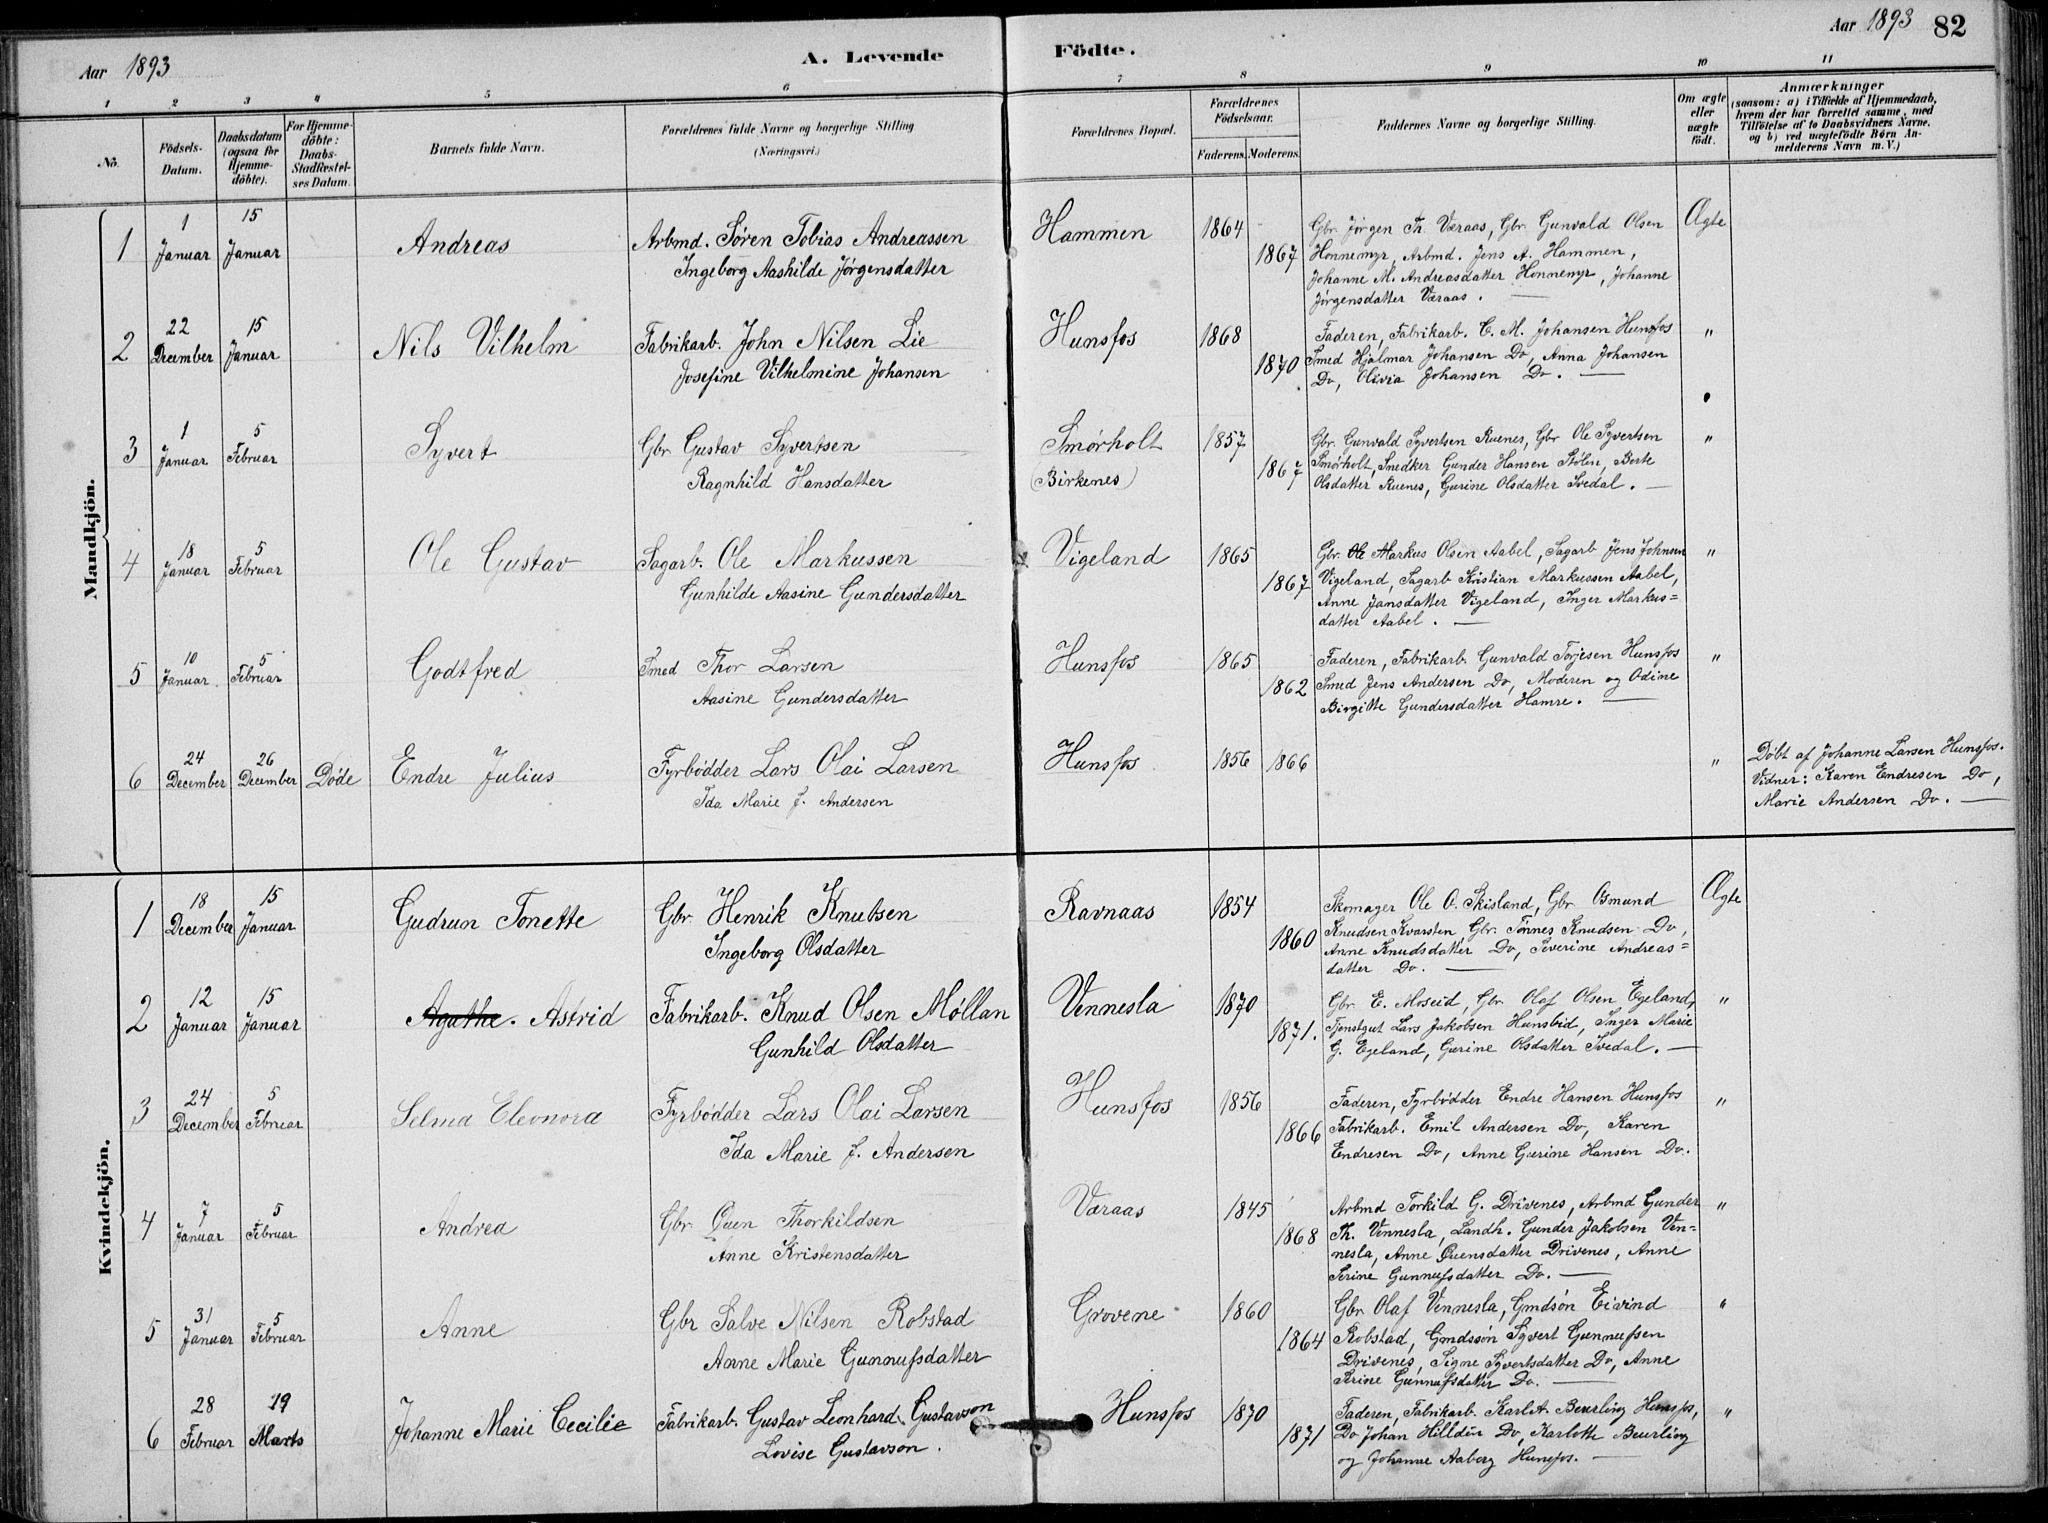 Aar 1893
A. Levende
Födte.
Aar 1893 82
1 2 3 4 5 6 7 8 9 10 11
No.
Födsels-
Datum.
Daabsdatum
(ogsaa for
Hjemme-
döbte).
For Hjemme-
döbte:
Daabs-
Stadfæstel-
ses Datum.
Barnets fulde Navn.
Forældrenes fulde Navne og borgerlige Stilling
(Næringsvei.)
Forældrenes Bopæl.
Forældrenes
Födselsaar.
Faderens. Moderens.
Faddernes Navne og borgerlige Stilling.
Om ægte
eller
uægte
födt.
Anmærkninger
(saasom: a) i Tilfælde af Hjemmedaab,
hvem der har forrettet samme, med
Tilföielse af to Daabsvidners Navne.
og b) ved uægtefödte Börn An-
melderens Navn m. V.)
Mandkjön.
1
1
Januar
15
Januar
Andreas
Arbmd. Søren Tobias Andreassen
Ingeborg Aashilde Jørgensdatter
Hammen
1864
1867
Gbr. Jørgen Th. Væraas, Gbr. Gunvald Olsen
Honnemyr, Arbmd. Jens A. Hammen,
Johanne M. Andreasdatter Honnemyr, Johanne
Jørgensdatter Væraas.
Ægte
2
22
December
15
Januar
Nils Vilhelm
Fabrikarb. John Nilsen Lie
Josefine Vilhelmine Johansen
Hunsfos
1868
1870
Faderen, Fabrikarb. C. M. Johansen Hunsfos
Smed Hjalmar Johansen Do, Anna Johansen
Do, Olivia Johansen Do.
"
3
1
Januar
5
Februar
Syvert
Gbr. Gustav Syvertsen
Ragnhild Hansdatter
Smørholt
(Birkenes)
1857
1867
Gbr. Gunvald Syvertsen Ruenes, Gbr Ole Syvertsen
Smørholt, Snedker Gunder Hansen Stølen, Berte
Olsdatter Ruenes, Gurine Olsdatter Ivedal.
"
4
18
Januar
5
Februar
Ole Gustav
Sagarb. Ole Markussen
Gunhilde Aasine Gundersdatter
Vigeland
1865
1867
Gbr. Ole Markus Olsen Aabel, Sagarb Jens Johnsen
Vigeland, Sagarb Kristian Markussen Aabel,
Anne Jansdatter Vigeland, Inger Markus=
datter Aabel.
"
5
10
Januar
5
Februar
Godtfred
Smed Thor Larsen
Aasine Gundersdatter
Hunsfos
1865
1862
Faderen, Fabrikarb. Gunvald Torjesen Hunsfos
Smed Jens Andersen Do, Moderen og Odine
Birgitte Gundersdatter Hamre.
"
6
24
December
26
December
Døde
Endre Julius
Fyrbødder Lars Olai Larsen
Ida Marie J. Andersen
Hunsfos
1856
1866
"
Døbt af Johanne Larsen Hunsfos.
Vidner: Karen Endresen Do,
Marie Andersen Do.
Kvindekjön.
1
18
December
15
Januar
Gudrun Tonette
Gbr. Henrik Knutsen
Ingeborg Olsdatter
Ravnaas
1854
1860
Skomager Ole O. Skisland, Gbr. Osmund
Knudsen Kvarsten, Gbr. Tønnes Knudsen Do,
Anne Knudsdatter Do, Severine Andreas=
datter Do.
Ægte
2
12
Januar
15
Januar
Agathe. Astrid
Fabrikarb. Knud Olsen Møllan
Gunhild Olsdatter
Vennesla
1870
1871.
Gbr. E. Moseid, Gbr. Olaf Olsen Egeland,
Tjenstgut Lars Jakobsen Hunsbid, Inger Marie
G. Egeland, Gurine Olsdatter Ivedal.
"
3
24
December
5
Februar
Selma Eleonora
Fyrbødder Lars Olai Larsen
Ida Marie J. Andersen
Hunsfos
1856
1866
Faderen, Fyrbødder Endre Hansen Hunsfos
Fabrikarb. Emil Andersen Do, Karen
Endresen Do, Anne Gurine Hansen Do.
"
4
7
Januar
5
Februar
Andrea
Gbr. Øuen Thorkildsen
Anne Kristensdatter
Væraas
1845
1868
Arbmd Torkild G. Drivenes, Arbmd Gunder
Th. Vennesla, Landh. Gunder Jakobsen Ven=
nesla, Anne Øuensdatter Drivenes, Anne
Serine Gunnufsdatter Do.
"
5
31
Januar
5
Februar
Anne
Gbr Salve Nilsen Robstad
Anne Marie Gunnufsdatter
Grovene
1860
1864
Gbr Olaf Vennesla, Gmdsøn Eivind
Robstad, Gmdssøn Syvert Gunnufsen
Drivenes, Signe Syvertsdatter Do, Anne
Serine Gunnufsdatter Do.
"
6
28
Februar
19
Marts
Johanne Marie Cecilie
Fabrikarb. Gustav Leonhard Gustavson
Lovise Gustavson.
Hunsfos
1870
1871
Faderen, Fabrikarb. Karl A. Beurling Hunsfos,
Do Johan Hilldin Do, Karlotte Beurling
og Johanne Aaberg Hunsfos.
"